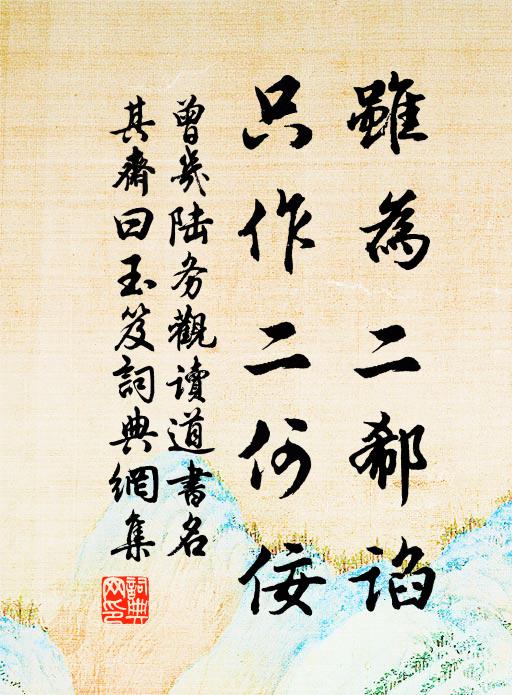 雖為二郗谄
只作二何佞
曾幾陆务觀讀道書名
其齋曰玉笈詞典網集
詞典